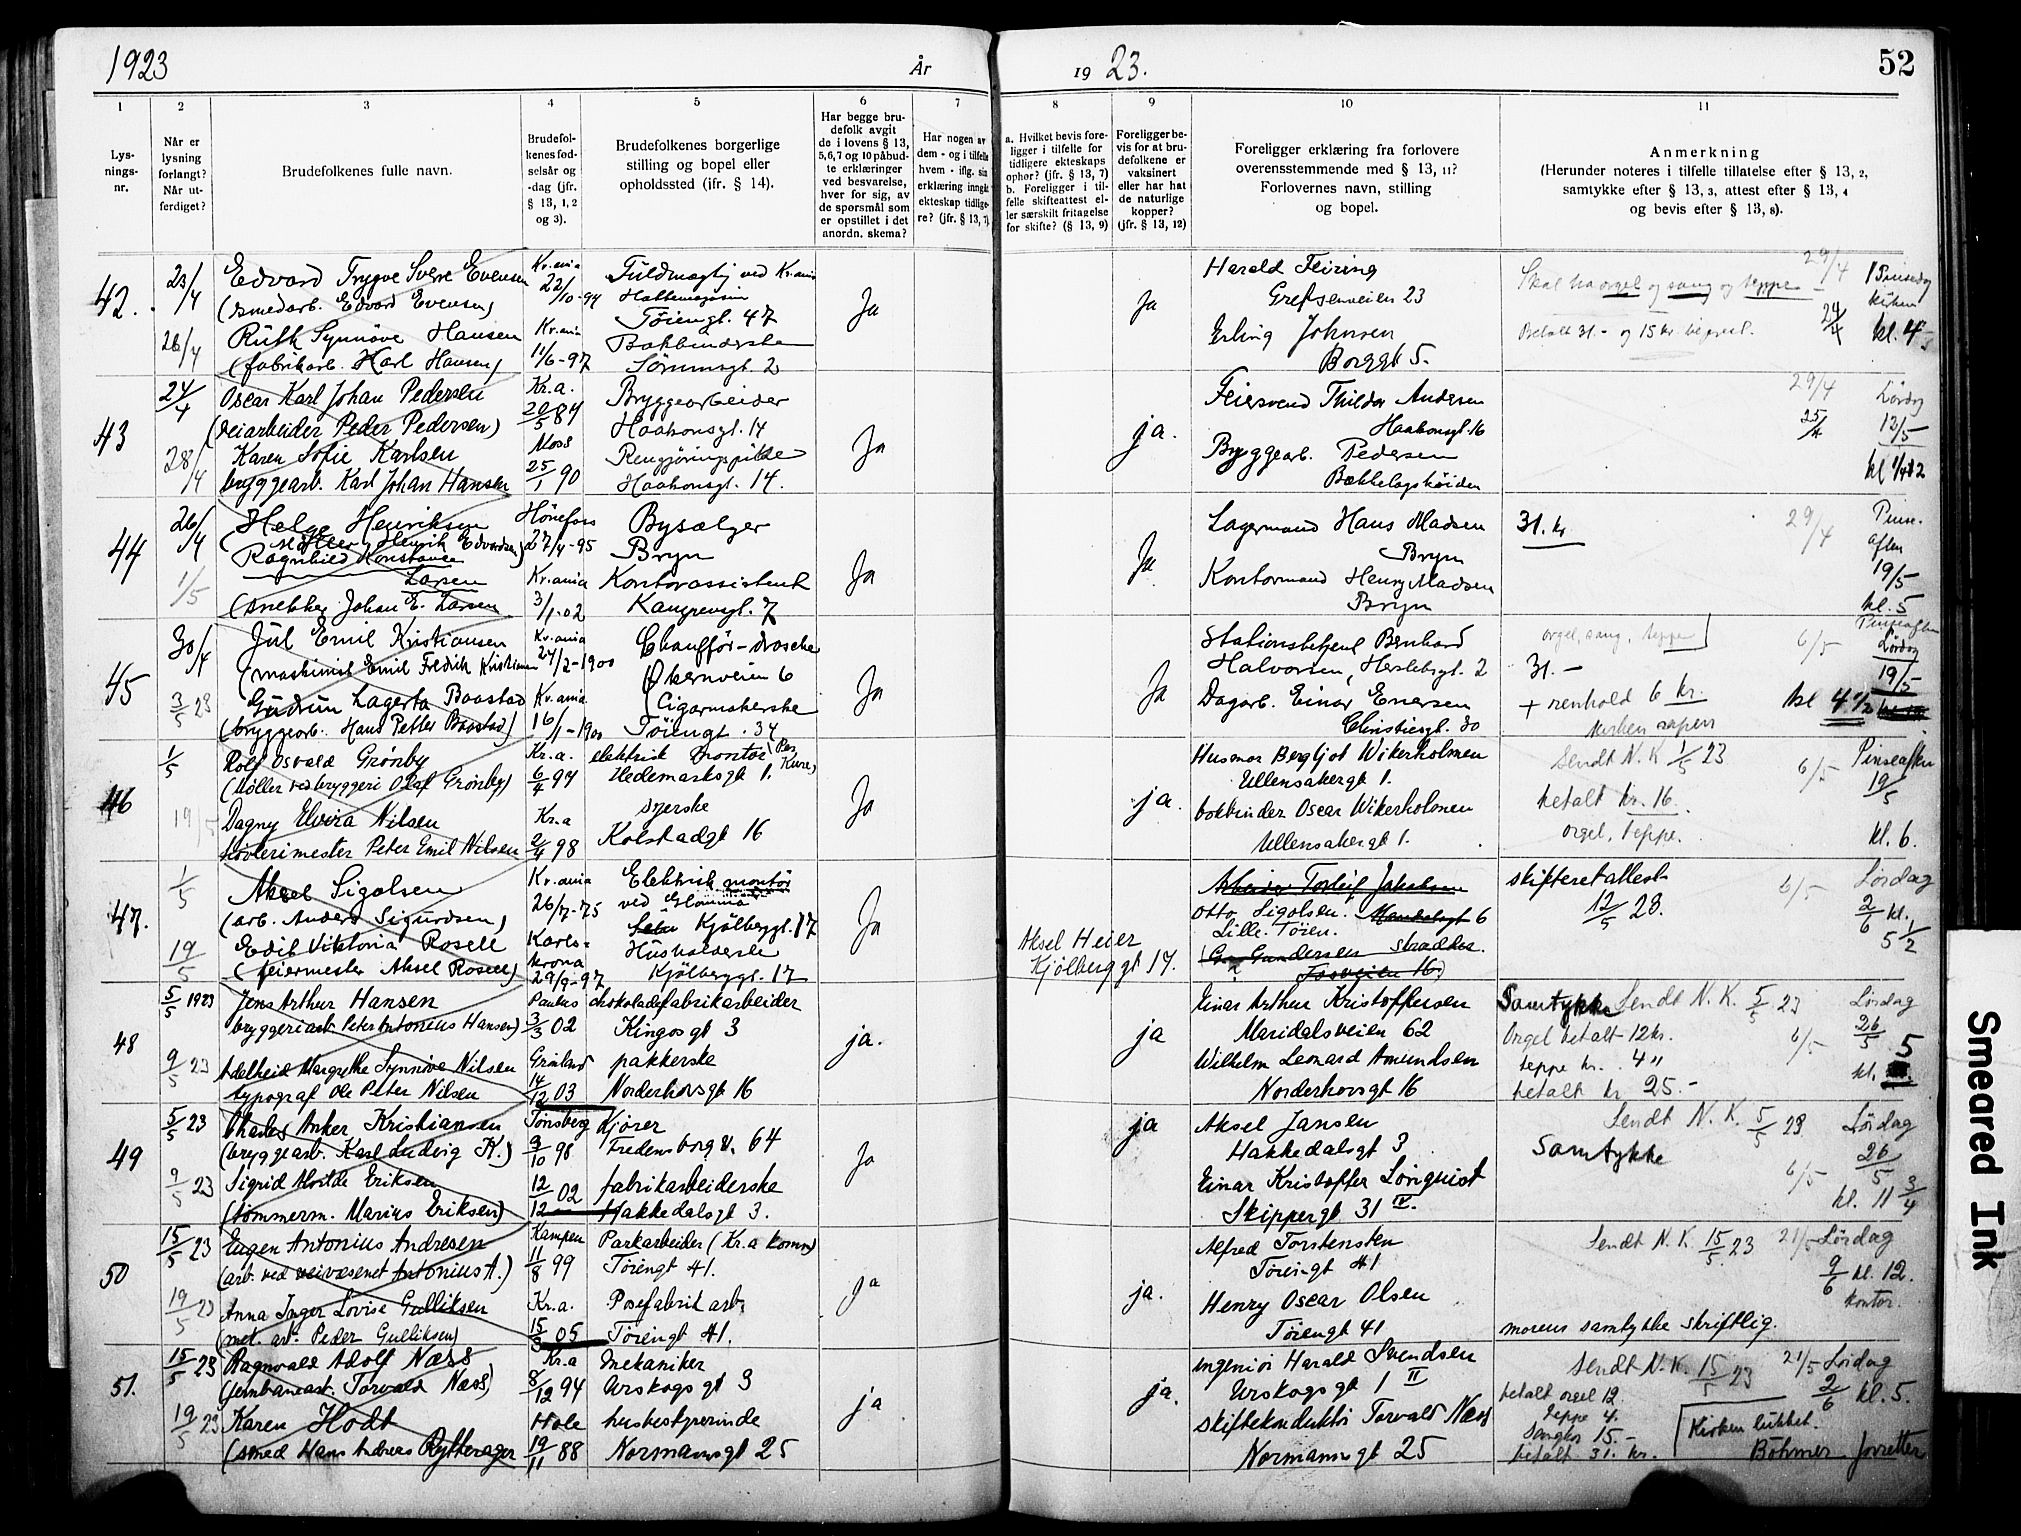 1923
År
19 23.
52
1
2
3
4
5
6
7
8
9
10
11
Lys-
nings-
nr.
Når er
lysning
forlangt?
Når ut-
ferdiget?
Brudefolkenes fulle navn.
Brudefol-
kenes fød-
selsår og
-dag (jfr.
§ 13, 1, 2
og 3).
Brudefolkenes borgerlige
stilling og bopel eller
opholdssted (ifr. § 14).
Har begge bru-
defolk avgit
de i lovens § 13,
5,6,7 og 10 påbud-
te erklæringer
ved besvarelse,
hver for sig, av
de spørsmål som
er opstillet i det
anordn. skema?
Har nogen av
dem - og i tilfelle
hvem - iflg. sin
erklæring inngåt
ekteskap tidlige-
re? (jfr. § 13, 7)
a. Hvilket bevis fore-
ligger i tilfelle for
tidligere ekteskaps
ophor? (jfr. § 13, 7)
b. Foreligger i til-
felle skifteattest el-
ler særskilt fritagelse
for skifte? (§ 13, 9)
Foreligger be-
vis for at bru-
defolkene er
vaksinert
eller har hat
de naturlige
kopper?
(jfr. § 13, 12)
Foreligger erklæring fra forlovere
overensstemmende med § 13, 11?
Forlovernes navn, stilling
og bopel.
Anmerkning
(Herunder noteres i tilfelle tillatelse efter § 13, 2,
samtykke efter § 13, 3, attest efter § 13, 4
og bevis efter § 13, 8).
42.
23/4
Edvard Trygve Sverre Evensen
(smedarb. Edvard Evensen)
Kr.ania
22/10-94
Fuldmægtig ved Kr.ania
Tøiengt. 47
26/4
Ruth Synnøve Hansen
(fabrikarb. Karl Hansen)
Kr.ania
11/6-97
Bokbinderske
Sørumsgt. 2
Ja
Ja
Harald Feiring
Grefsenveien 23
Erling Johnsen
Borggt 5.
Skal ha orgel og sang og teppe
Betalt 31.- og 15 kr
29/4
24/4
kl. 4
43
24/4
Oscar Karl Johan Pedersen
(veiarbeider Peder Pedersen)
Kr.a.
20/5 87
Bryggearbeider
Haakonsgt. 14
28/4
Karen Sofie Karlsen
bryggearb. Karl Johan Hansen
Moss
25/1 90
Rengjøringspike
Haakonsgt. 14.
Ja
ja.
Feiersvend Thildor Andersen
Haakonsgt. 16
Byggearb. Pedersen
Bækkelagshøiden
29/4
25/4
Lørdag
12/5
44
26/4
Helge Henriksen
(Møller Henrik Edvardsen)
Hønefoss
27/4-95
Bysælger
Bryn
1/5
Ragnhild Konstance
Larsen
(snekker Johan E. Larsen
Kr.ania
3/1-02
Kontorassistent
Kangrevgt. 7
Ja
Ja
Lagermand Hans Madsen
Bryn
Kontormand Henry Madsen
Bryn
31. kr
29/4
Pinse-
aften
19/5
kl. 5
45
30/4
Jul Emil Kristiansen
(maskinist Emil Fredrik Kristiansen
Kr.ania
24/2-1900
Chauffør-drosche
Økernveien 6
3/5 23
Gudrun Lagerta Baastad
(bryggearb. Hans Petter Baastad)
Kr.ania
16/1-1900
Cigarmakerske
Tøiengt. 34
Ja
Ja
Stationsbetjent Bernhard
Halvorsen, Herslebsgt. 2
Dagarb. Einar Enersen
Christiesgt. 30
orgel, sang, teppe
31.-
+ renhold 6 kr.
6/5
Pinseaften
Lørdag
19/5
kl 4 1/2
46
1/5
Rolf Osvald Grønby
(Møller ved bryggeri Olaf Grønby)
Kr.a.
6/4 94
elektrisk montør
Hedemarksgt 1.
19/5
Dagny Elvira Nilsen
høvlerimester Peter Emil Nilsen
Kr.a
2/4 98
syerske
Kolstadgt 16
Ja
ja.
Husmor Bergljot Wikerholmen
Ullensakergt 1.
bokbinder Oscar Wikerholmen
Ullensakergt 1.
Sendt N.K 1/5 23
betalt kr. 16.
orgel, teppe.
6/5
Pinseaften
19/5
kl. 6.
47.
1/5
Aksel Sigolsen
(arb. Anders Sigurdsen)
Kr.ania
26/7-75
Elektrisk montør
ved Glomma
Kjølberggt. 17
19/5
Edit Viktoria Rosell
(feiermester Aksel Rosell)
Karls-
krona
29/9-97
Husholderske
Kjølberggt. 17
Ja
Aksel Heier
Kjølberggt 17.
Arbeider Torleif Jakobsen
Otto Sigolsen. Mandalsgt 6
Lille Tøien.
skifteretattest
12/5 23.
6/5
Lørdag
2/6 kl.
5 1/2
48
5/5 1923
Jens Arthur Hansen
bryggeriarb Peter Antonius Hansen)
Paulus
3/3 02
chokoladefabrikarbeider
Kingosgt 3
9/5 23
Adelheid Margrethe Synnøve Nilsen
typograf Ole Peter Nilsen
Grønland
14/12 03
pakkerske
Norderhovsgt 16
ja.
ja
Einar Arthur Kristoffersen
Maridalsveien 62
Wilhelm Leonard Amundsen
Norderhovsgt 16
Samtykke Sendt N.K. 5/5 23
Orgel betalt 12 kr.
teppe kr. 4 "
betalt kr 25.-
6/5
Lørdag
26/5
kl. 5
49
5/5 23
Charles Anker Kristiansen
(bryggearb. Karl Ludvig K.)
Tønsberg
9/10 98
Kjører
Fredensborg v. 64
9/5 23
Sigrid Alvilde Eriksen
(tømmerm. Marius Eriksen)
12/12 02
fabrikarbeiderske
Hakkedalsgt 3.
Ja
ja
Aksel Jansen
Hakkedalsgt 3
Einar Kristoffer Lønquist
Skippergt 31 IV.
Sendt N.K. 5/5 23
Samtykke
6/5
Lørdag
26/5
kl. 11 3/4
50
15/5 23
Eugen Antonius Andresen
(arb. ved veivæsenet Antonius A.)
Kampen
11/8 99
Parkarbeider (Kr.a komm)
Tøiengt 41.
19/5 23
Anna Inger Lovise Gulliksen
(met. arb. Peder Gulliksen)
Kr.a.
15/3 05
Posefabrik arb.
Tøiengt 41.
ja
ja.
Alfred Torstensen
Tøiengt 41
Henry Oscar Olsen
Tøiengt 41
Sendt N.K. 15/5 23
21/5
Lørdag
9/6 kl. 12.
kontor.
morens samtykke skriftlig.
51.
15/5 23
Ragnvald Adolf Næss
(jernbanearb. Torvald Næss)
Kr.a
8/12 94
mekaniker
Urskogsgt 3
19/5 23
Karen Hodt
(smed Hans Andreas Rytterager
Hole
19/11 88
husbestyrerinde
Normannsgt 25
ja
ja.
ingeniør Harald Svendsen
Urskogsgt 1 II
skiftekonduktør Torvald Næss
Normannsgt 25
Sendt N.K. 15/5 23
betalt orgel 12.
Teppe 4.
Sangkor 15.-
betalt 31. kr.
21/5
Lørdag
2/6 kl. 5.
Kirken lukket.
Smeared Ink